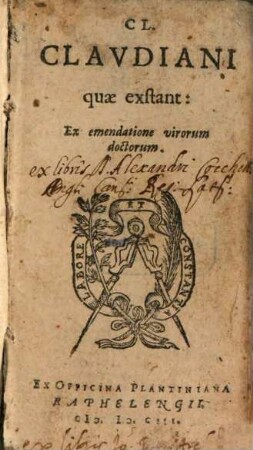 CL.
CLAVDIANI
quæ exstant:
Ex emendatione virorum
doctorum.
ex libris Alexandri
LABORE ET CONSTANTIA
EX OFFICINA PLANTINIANA
RAPHELENGII.
CIↃ. IↃ. CIII.
ex libris